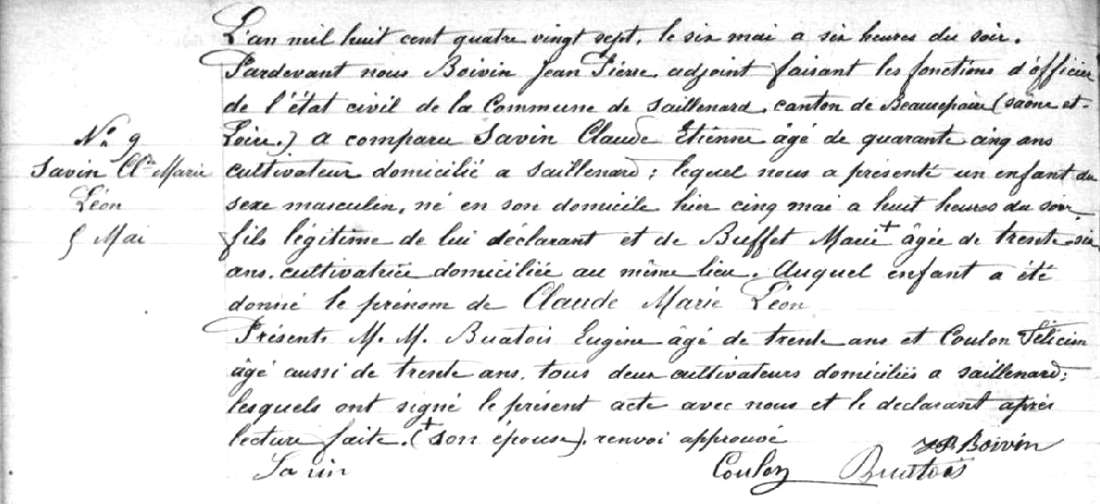 L'an mil huit cent quatre vingt sept, le six mai a six heures du soir.
Pardevant nous Boivin Jean Pierre adjoint faisant les fonctions d'officier
de l'état civil de la Commune de Saillenard, canton de Beaurepaire (Saône et-
Loire.) a comparu Savin Claude Etienne âgé de quarante cinq ans
N° 9
Savin Cl.de Marie
Léon
5 Mai
cultivateur domicilié a Saillenard ; lequel nous a présenté un enfant du
sexe masculin, né en son domicile hier cinq mai a huit heures du soir,
fils légitime de lui déclarant et de Buffet Marie + âgée de trente-six
ans, cultivatrice domiciliée au même lieu. Auquel enfant a été
donné le prénom de Claude Marie Léon
Présents M. M. Buatois Eugène âgé de trente ans et Coulon Félicien
âgé aussi de trente ans, tous deux cultivateurs domiciliés a Saillenard ;
lesquels ont signé le présent acte avec nous et le declarant après
lecture faite. (+ son épouse). renvoi approuvé
JP Boivin
Savin Coulon Buatois